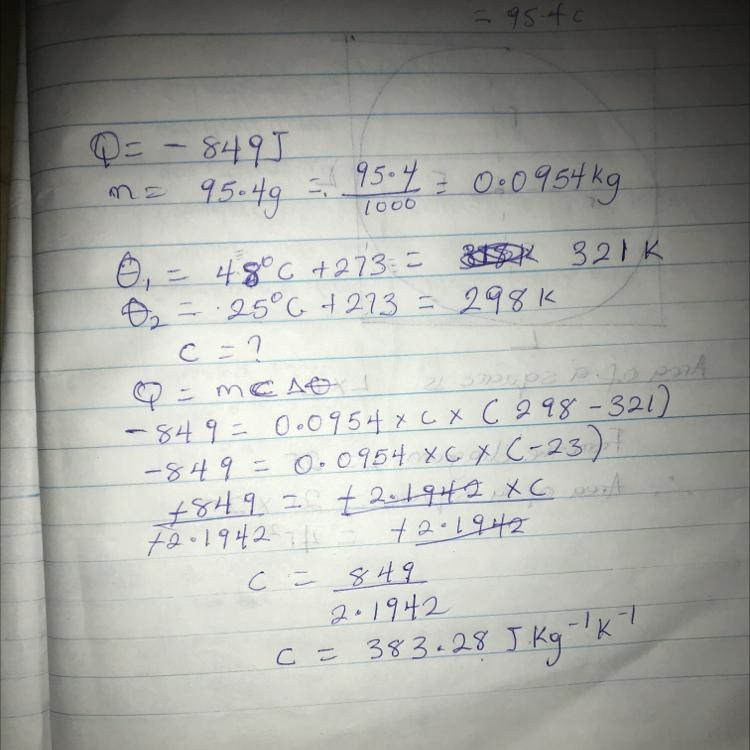 = 95.4c
Q = - 849J
m = 95.4g = 95.4/1000 = 0.0954kg
θ₁ = 48°C + 273 = 321 K
θ₂ = 25°C + 273 = 298 K
c = ?
Q = mcΔθ
-849 = 0.0954 × c × (298 - 321)
-849 = 0.0954 × c × (-23)
+849/+2.1942 = +2.1942 × c/+2.1942
c = 849/2.1942
c = 383.28 J.Kg⁻¹K⁻¹